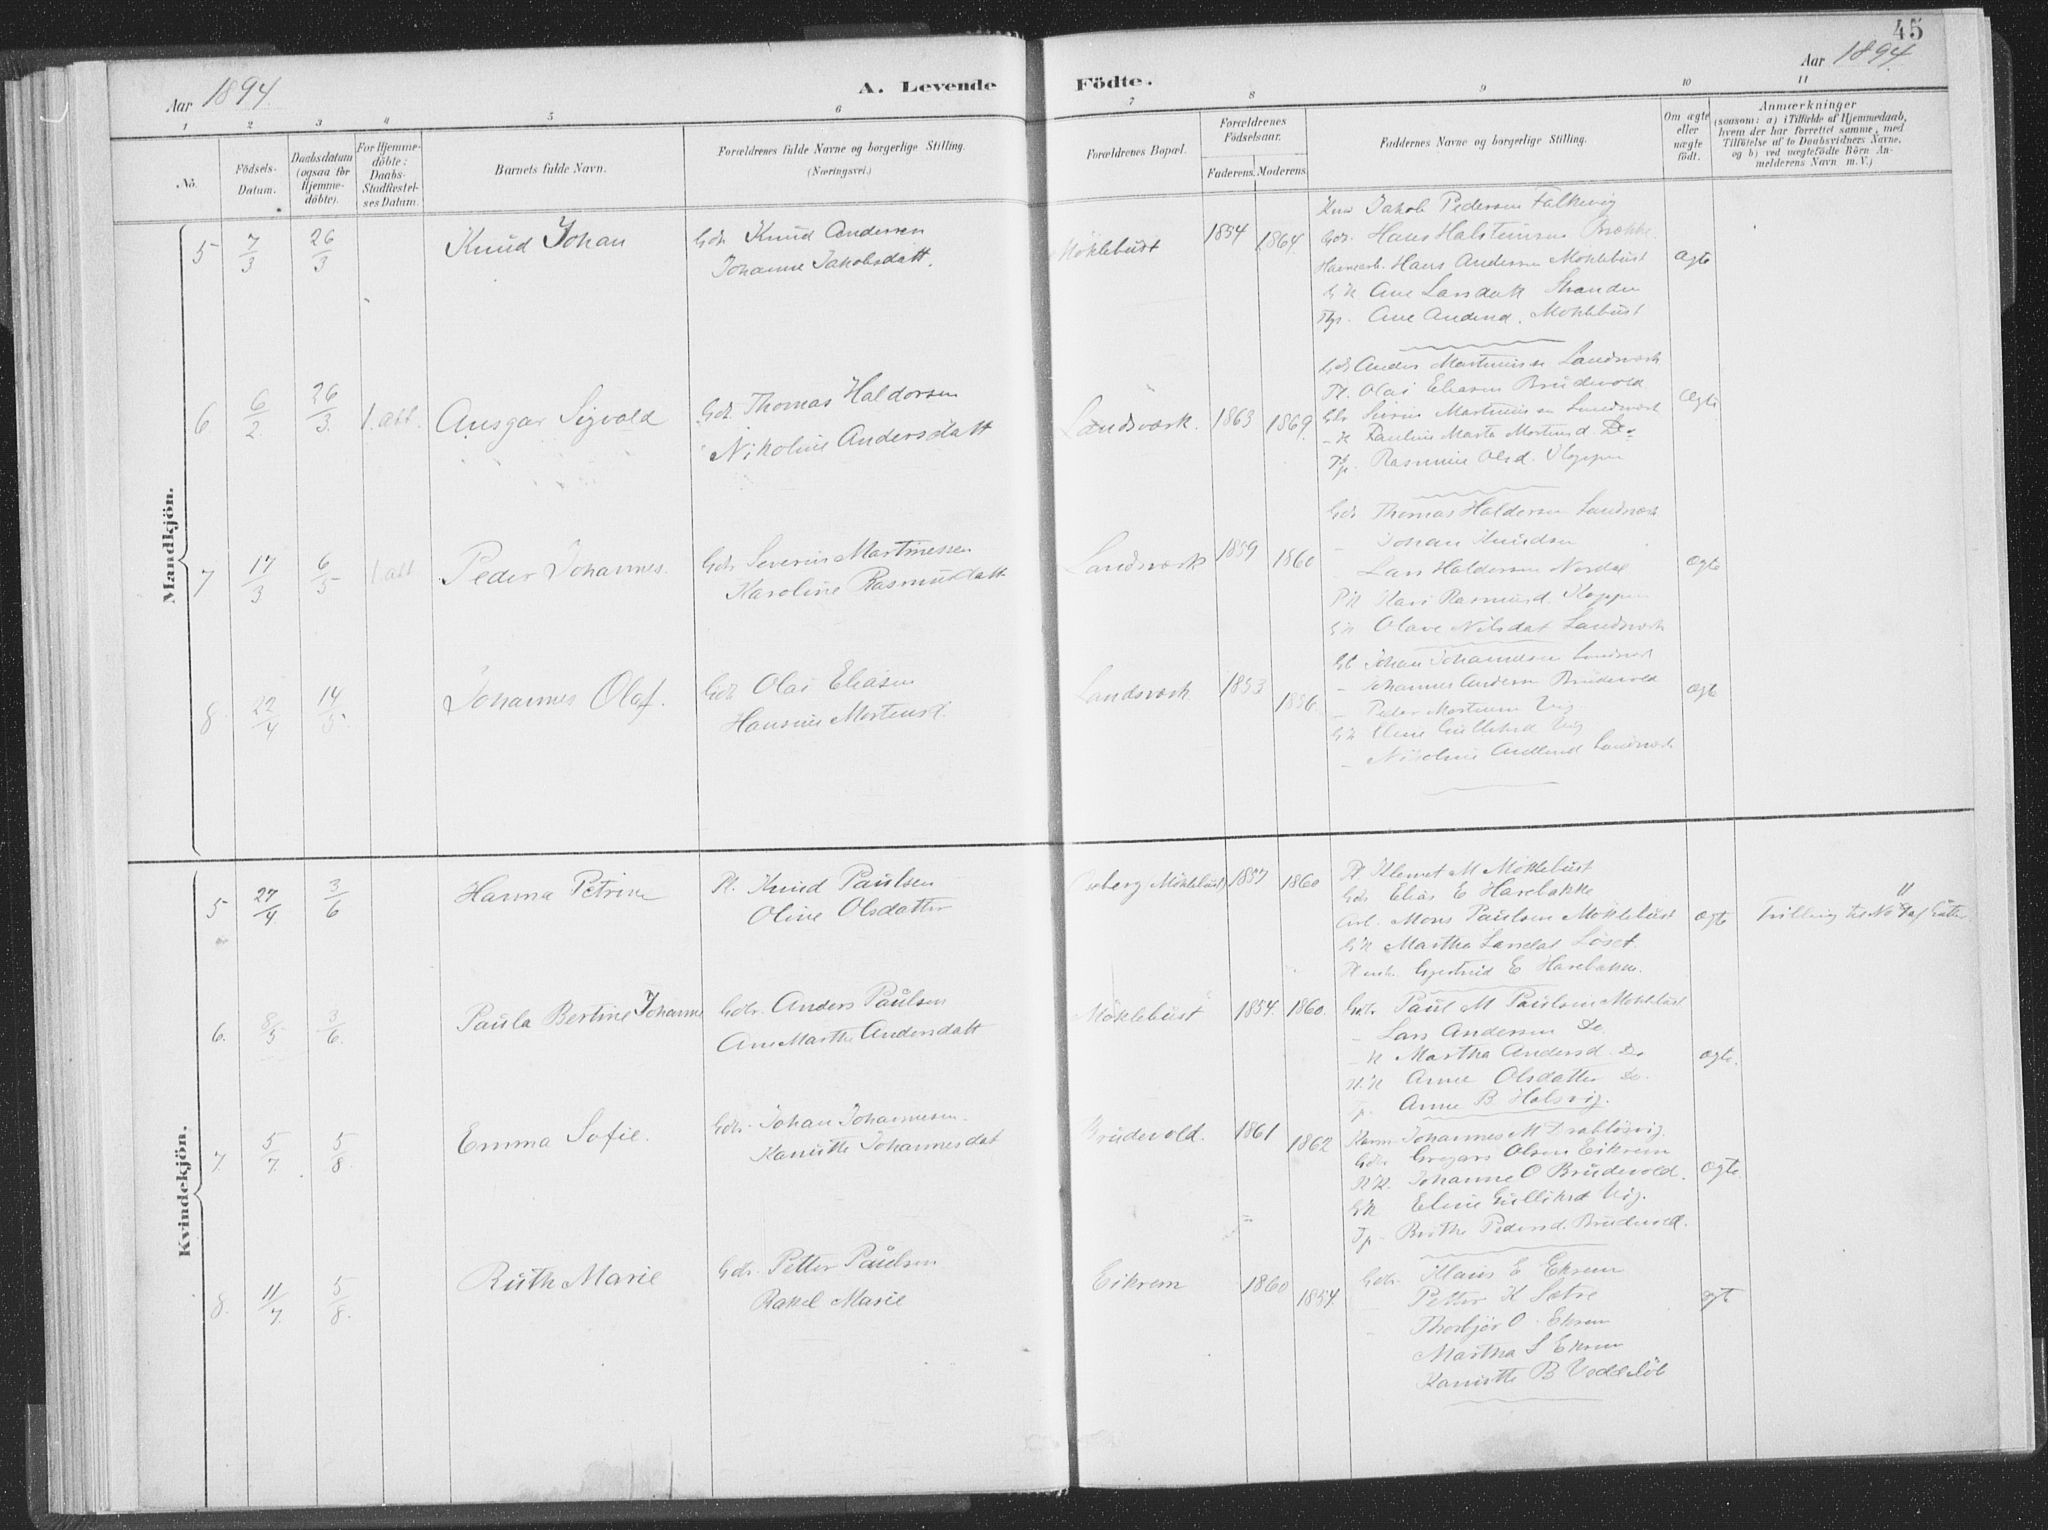 45
Aar 1894.
A. Levende Födte.
Aar 1894.
1 2 3 4 5 6 7 8 9 10 11
No.
Födsels-Datum.
Daabsdatum (ogsaa for Hjemme-döbte).
For Hjemme-döbte: Daabs-Stadfæstel-ses Datum.
Barnets fulde Navn.
Forældrenes fulde Navne og borgerlige Stilling. (Næringsvei.)
Forældrenes Bopæl.
Forældrenes Födselsaar.
Faderens. Moderens.
Faddernes Navne og borgerlige Stilling.
Om ægte eller uægte födt.
Anmærkninger (saasom: a) i Tilfælde af Hjemmedaab, hvem der har forrettet samme, med Tilföielse af to Daabsvidners Navne, og b) ved uægtefödte Börn An-melderens Navn m. V.)
Mandkjön.
5 7/3 26/3 Knud Johan
Gdr. Knud Andersen
Johanne Jakobsdatt.
Moklebust 1854 1864.
Jakob Pedersen Falkevig
Gdr. Hans Halsteinsen Brekke
Hans Andersen Moklebust
Ane Larsdatt Stranden
Ane Andersd. Moklebust
ægte
6 6/2. 26/3. 1. att. Ansgar Sigvald
Gdr. Thomas Haldorsen
Nikoline Andersdatt
Landsværk. 1863 1869.
Gdr Anders Martinussen Landsværk
Pl. Olai Eliasen Brudevold
Martinussen Landsværk
Pauline Marta Do
Rasmine Olsd. Kloppen
ægte
7 17/3 6/5 1. att Peder Johannes.
Gdr Severin Martinessen
Karoline Rasmusdatt
Landsværk 1859 1860
Gdr Thomas Haldorsen Landsværk
Johan Knudsen
Lars Haldorsen Nordal
Kari Rasmusd. Kloppen
Olave Nilsdat Landsværk
ægte
8. 22/4 14/5. Johannes Olaf.
Gdr Olai Eliasen
Hansine Mortensd.
Landsværk 1853 1856.
Johan Johannesen Landsværk
Johannes Andersen Brudevold
Peder Mortensen Vig
Eline Gullikd Vig
Nikoline Landsværk
ægte
Kvindekjön.
5 27/4. 3/6 Hanna Petrine
Pl. Knud Paulsen
Oline Olsdatter
Moklebust 1857 1860
Pl Klemet M Moklebust
Gdr Elias E Harebakke
Arb. Mons Paulsen Moklebust
Martha Larsdat Löset
Gjertrud E Harebakken.
ægte
Tvilling til No
6. 8/5 3/6. Paula Bertine Johanne
Gdr. Anders Paulsen
Ane Marthe Andersdatt
Moklebust 1854. 1860.
Gdr Paul M Paulsen Moklebust
Lars Andersen Do
Martha Andersd. Do
Anne Olsdatter Do.
Anne B Holsvig.
ægte.
7. 5/7 5/8. Emma Sofie.
Gdr. Johan Johannesen.
Kanutte Johannesdat
Brudevold. 1861 1862
Johannes M Drablösvig.
Gdr Gregars Olsen Eikrem
Johanne O Brudevold.
Eline Gullikd Vig.
Tp. Berthe Pedersd. Brudevold.
ægte.
8. 11/7. 5/8. Ruth Marie
Gdr. Petter Paulsen
Rakel Marie
Eikrem 1860 1854.
Gdr. Klaus E Ekrem
Petter K Sætre
Thorbjör O Ekrem
Martha S Ekrem
Kanutte B Veddelöb
ægt